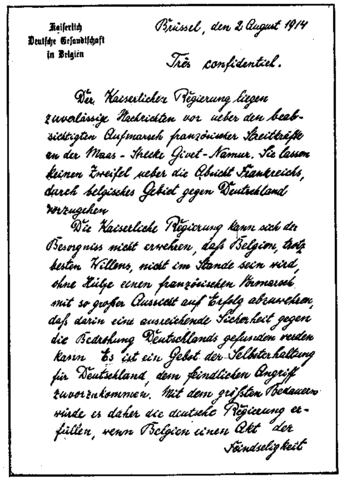 Kaiserlich
Deutsche Gesandtschaft
in Belgien
Brüssel, den 2. August 1914
Très confidentiel.
Der Kaiserlichen Regierung liegen
zuverlässige Nachrichten vor ueber den beab-
sichtigten Aufmarsch französischer Streitkräfte
an der Maas-Strecke Givet-Namur. Sie lassen
keinen Zweifel ueber die Absicht Frankreichs,
durch belgisches Gebiet gegen Deutschland
vorzugehen
Die Kaiserliche Regierung kann sich der
Besorgniss nicht erwehren, daß Belgien, trotz
besten Willens, nicht im Stande sein wird,
ohne Hülfe einen französischen Vormarsch
mit so großer Aussicht auf Erfolg abzuwehren,
daß darin eine ausreichende Sicherheit gegen
die Bedrohung Deutschlands gefunden werden
kann Es ist ein Gebot der Selbsterhaltung
für Deutschland, dem feindlichen Angriff
zuvorzukommen. Mit dem größten Bedauern
würde es daher die deutsche Regierung er-
füllen, wenn Belgien einen Akt der
Feindseligkeit